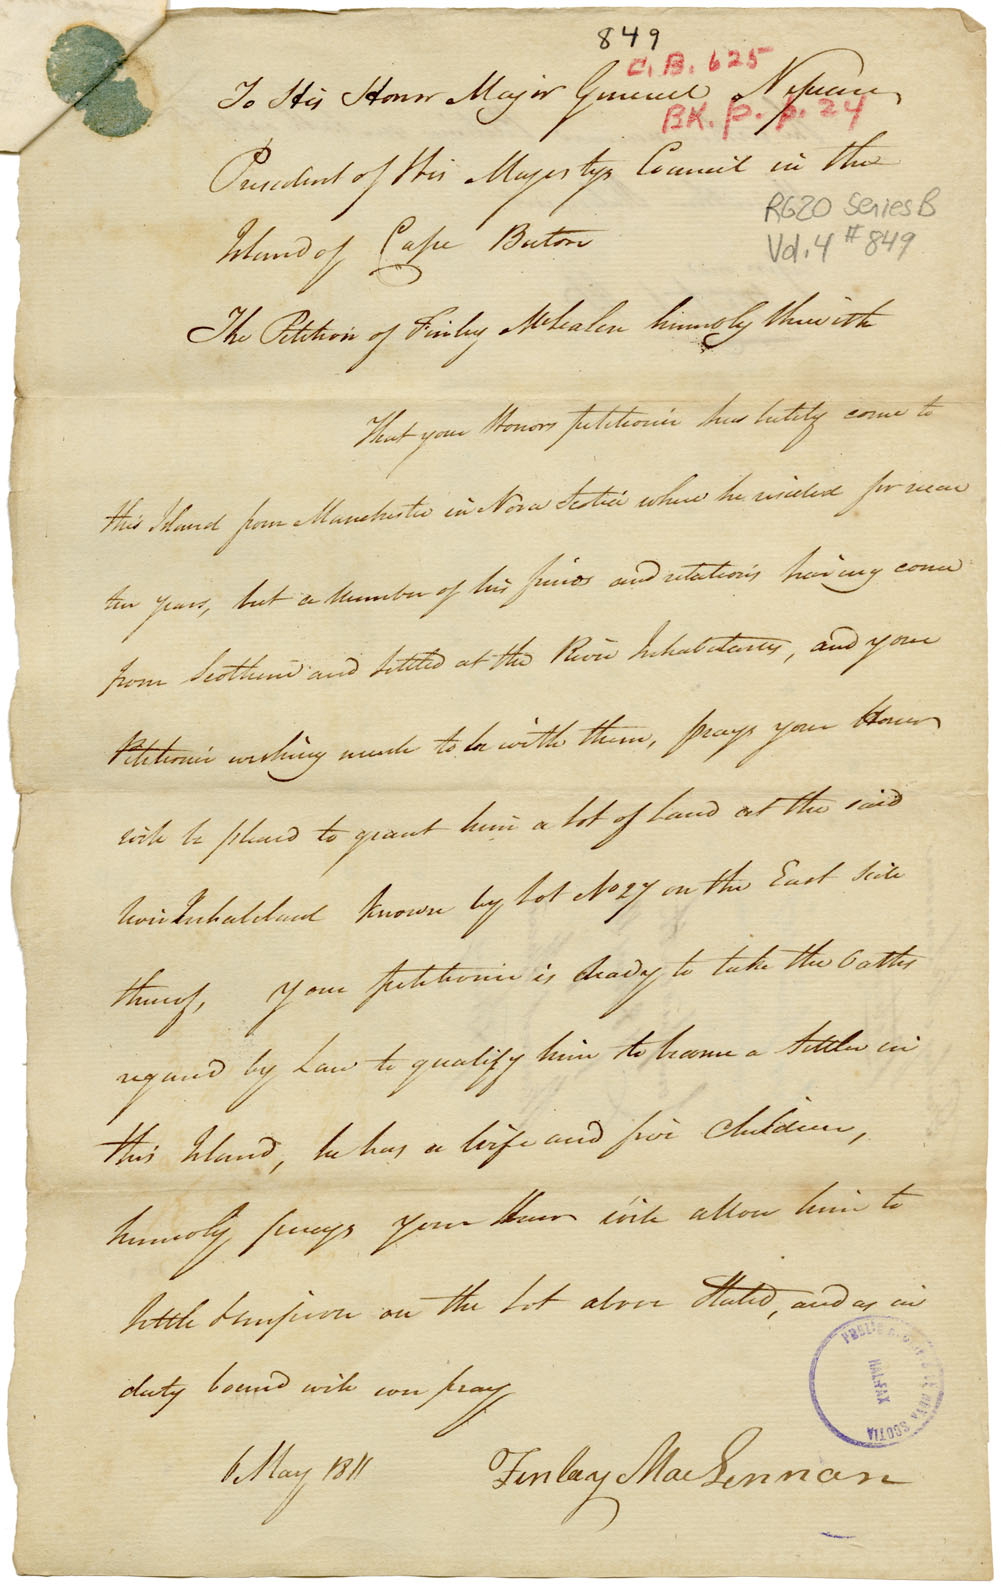 849
C.B. 625
To His Honor Major General Nepean
BK. p. p. 24
President of His Majestys Council in the
RG20 Series B
Island of Cape Breton
Vol. 4 # 849
The Petition of Finlay humbly
That your Honors petitioner has lately come to
this Island from Manchester in Nova Scotia where he resided for near
ten years, but a Number of his and relations having come
from and settled at the River Inhabitants, and your
Petitioner wishing much to be with them, prays your Honor
will be pleasd to grant him a Lot of Land at the said
known by Lot No 27 on the East side
thereof, Your petitioner is ready to take the Oaths
required by Law to qualify him to become a Settler in
this Island, he has a Wife and five Children,
humbly prays your Honor will allow him to
settle on the Lot above Stated, and as in
duty bound will ever pray
PUBLIC ARCHIVES OF NOVA SCOTIA
HALIFAX
6 May 1811 Finlay MacLennan